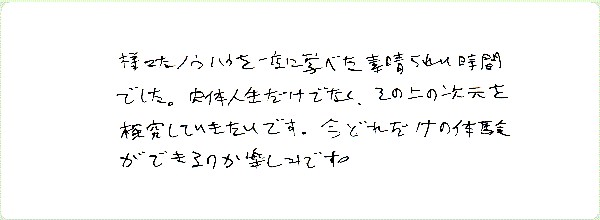 様々なノウハウを一度に学べた素晴らしい時間
でした。肉体人生だけでなく、その上の次元を
極究していきたいです。今どれだけの体験
ができるのか楽しみです。